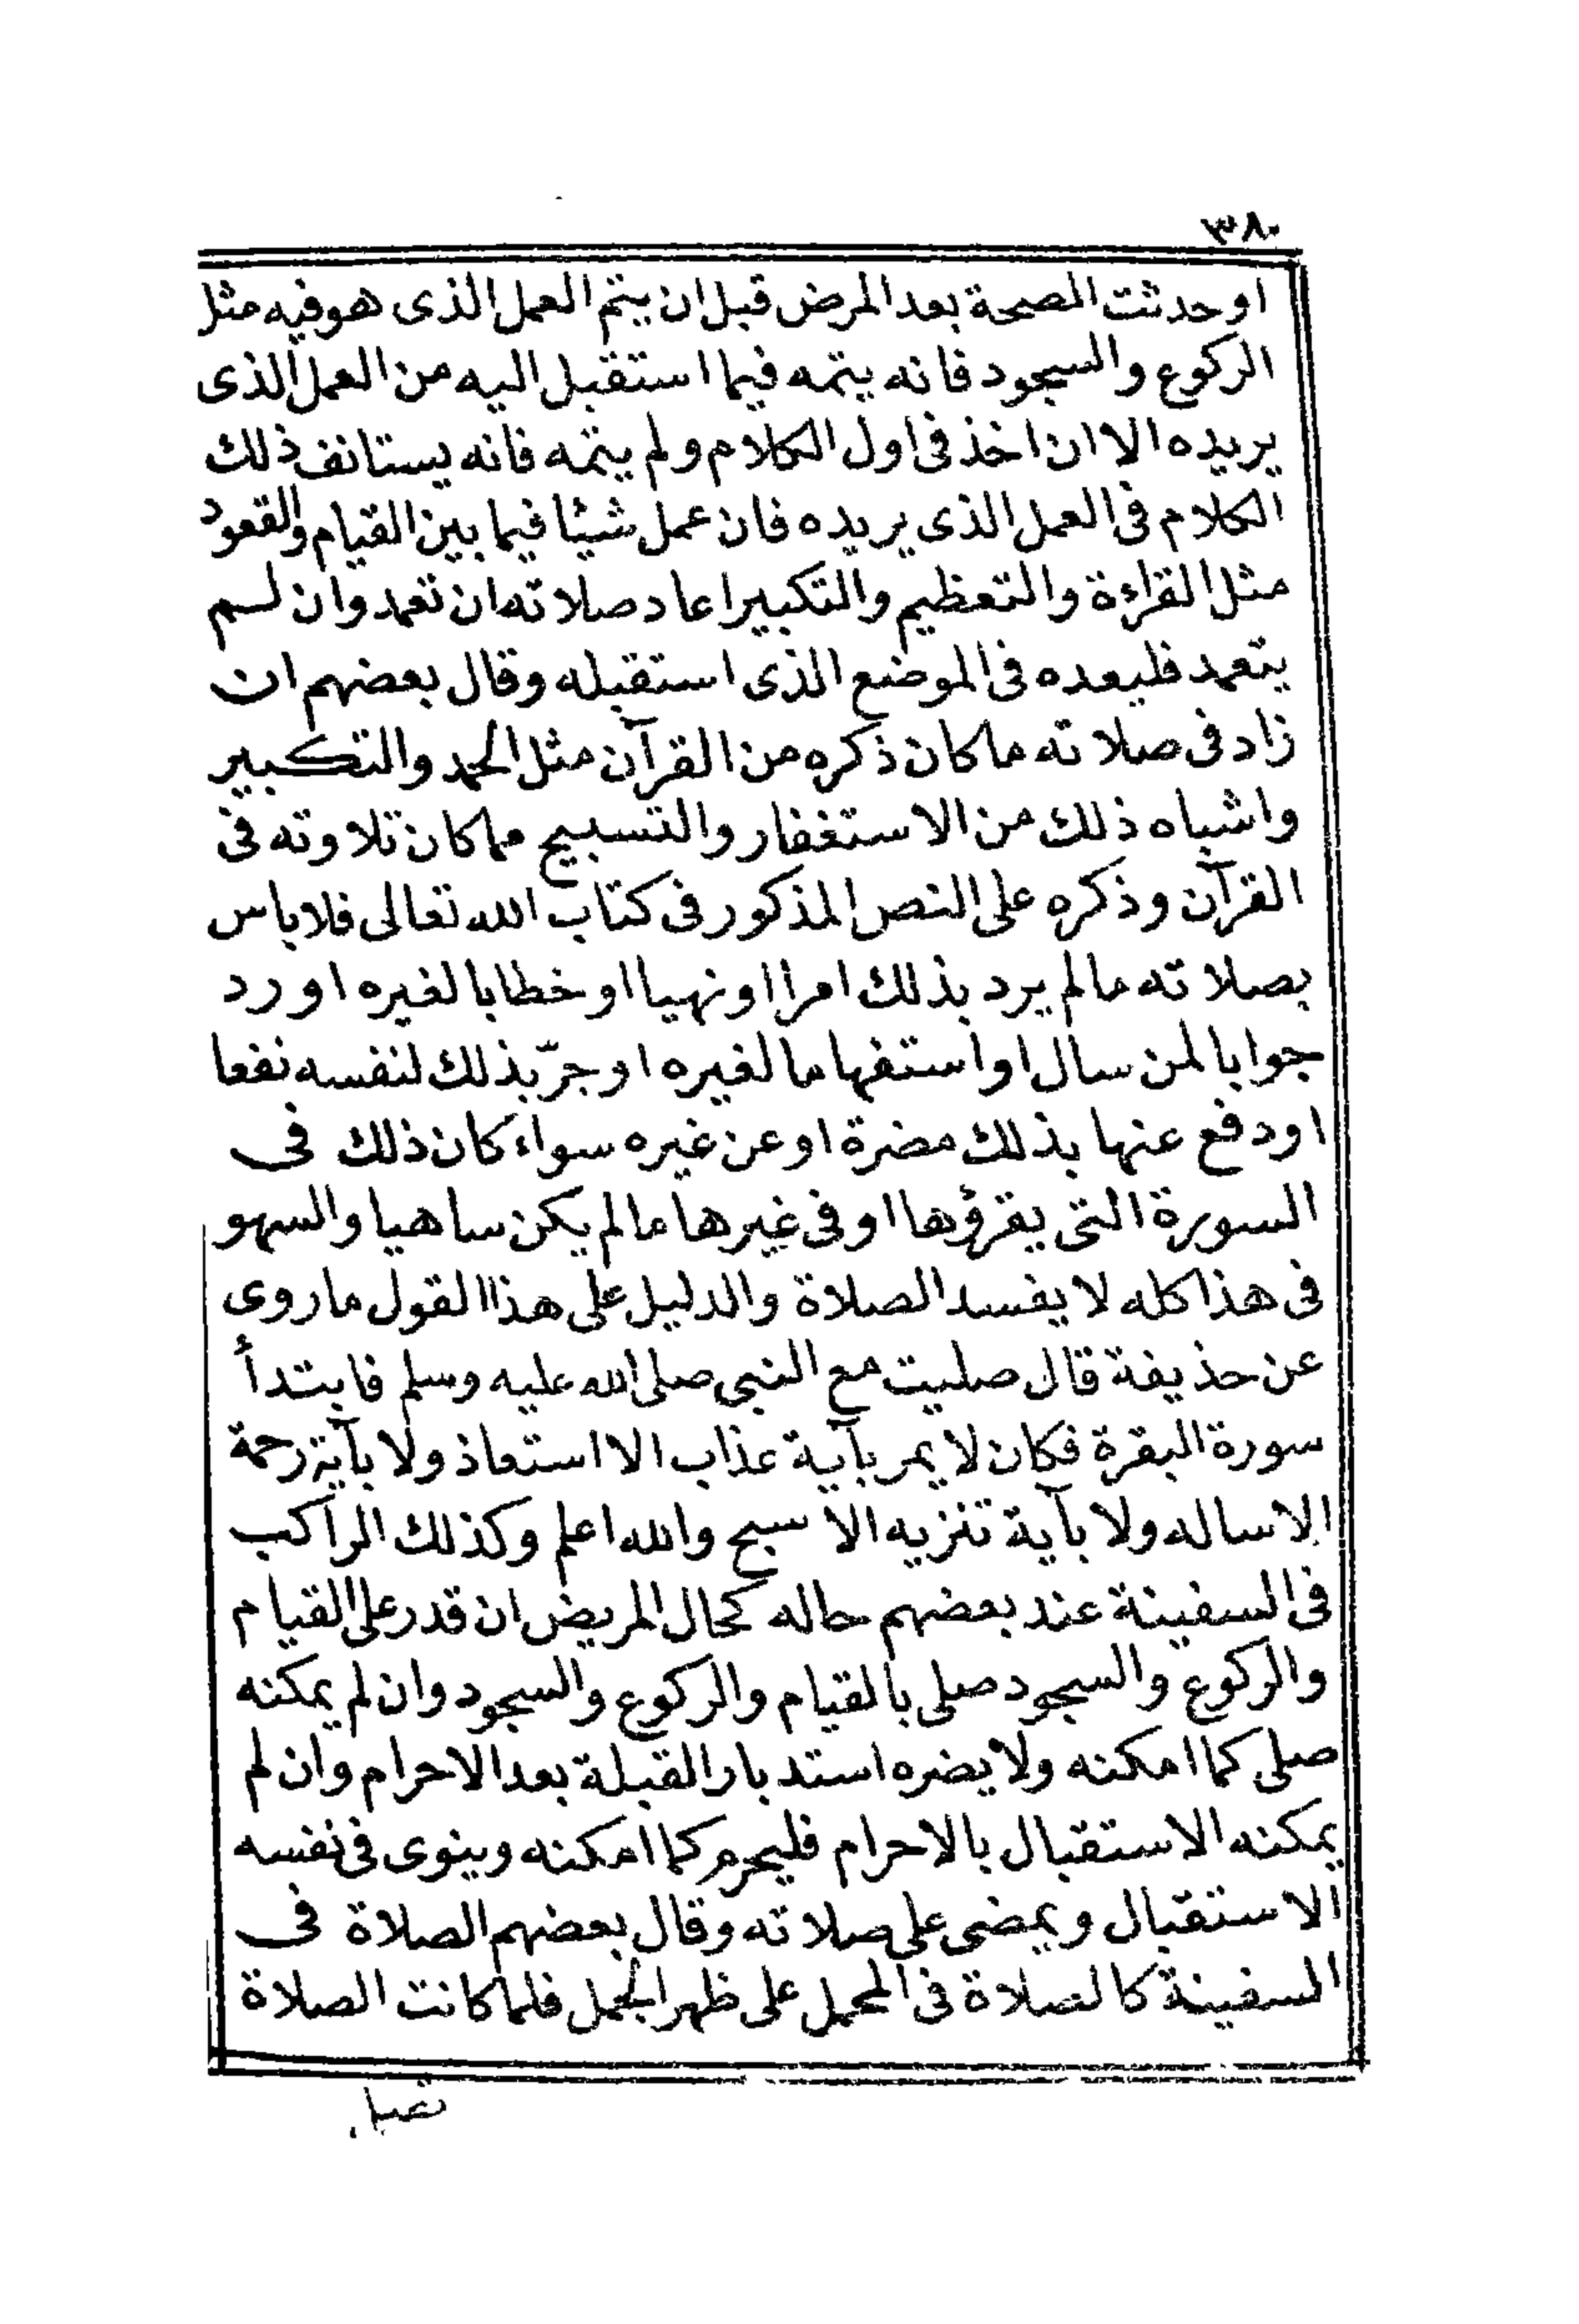 ٣٨٠
او حدثت الصحة بعد المرض قبل ان يتم العمل الذى هو فيه مثل
الركوع والسجود فانه يتمه فيما استقبل اليه من العمل الذى
يريده الا ان اخذ فى اول الكلام ولم يتمه فانه يستانف ذلك
الكلام فى العمل الذى يريده فان عمل شيئا فيما بين القيام والقعود
مثل القراءة والتعظيم والتكبير اعاد صلاته ان تعمد وان لم
يتعمد فليعده فى الموضع الذى استقبله وقال بعضهم ان
زاد فى صلاته ما كان ذكره من القرآن مثل الحمد والتكبير
واشباه ذلك من الاستغفار والتسبيح مما كان تلاوته فى
القرآن وذكره على النص المذكور فى كتاب الله تعالى فلا باس
بصلاته ما لم يرد بذلك امرا او نهيا او خطابا لغيره او رد
جوابا لمن سال او استفهاما لغيره او جرّ بذلك لنفسه نفعا
او دفع عنها بذلك مضرة او عن غيره سواء كان ذلك فى
السورة التى يقرؤها او فى غيرها ما لم يكن ساهيا والسهو
فى هذا كله لا يفسد الصلاة والدليل على هذا القول ما روى
عن حذيفة قال صليت مع النبى صلى الله عليه وسلم فابتدأ
سورة البقرة فكان لا يمر بآية عذاب الا استعاذ ولا بآية رحمة
الا ساله ولا بآية تنزيه الا سبح والله اعلم وكذلك الراكب
فى السفينة عند بعضهم حاله كحال المريض ان قدر على القيام
والركوع والسجود صلى بالقيام والركوع والسجود وان لم يمكنه
صلى كما امكنه ولا يضره استدبار القبلة بعد الاحرام وان لم
يمكنه الاستقبال بالاحرام فليحرم كما امكنه وينوى فى نفسه
الاستقبال ويمضى على صلاته وقال بعضهم الصلاة فى
السفينة كالصلاة فى المحمل على ظهر الجمل فلما كانت الصلاة